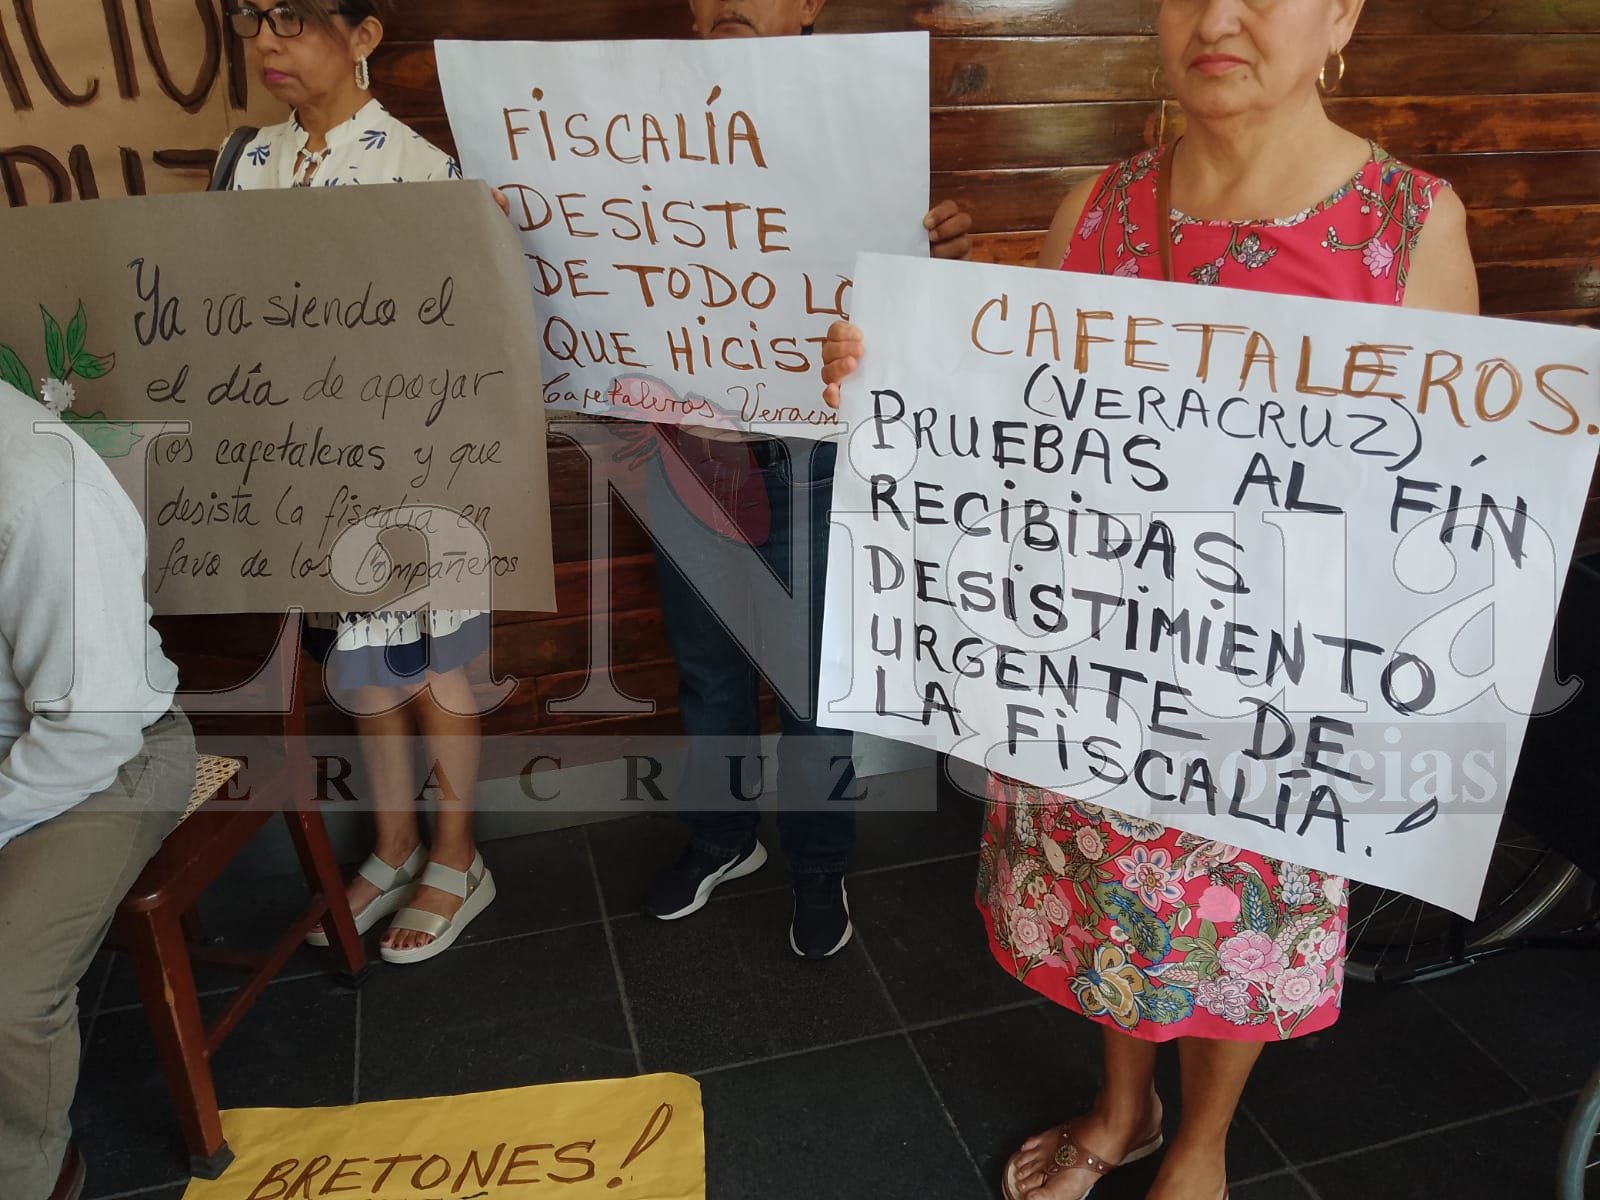 Ya va siendo el
el día de apoyar
los cafetaleros y que
desista la fiscalia en
favo de los Compañeros
FISCALÍA
DESISTE
DE TODO LO
QUE HICIST
Cafetaleros Veracru
CAFETALEROS.
(VERACRUZ)
PRUEBAS AL FIN
RECIBIDAS
DESISTIMIENTO
URGENTE DE
LA FISCALÍA.!
BRETONES!
La Nigua
VERACRUZ noticias